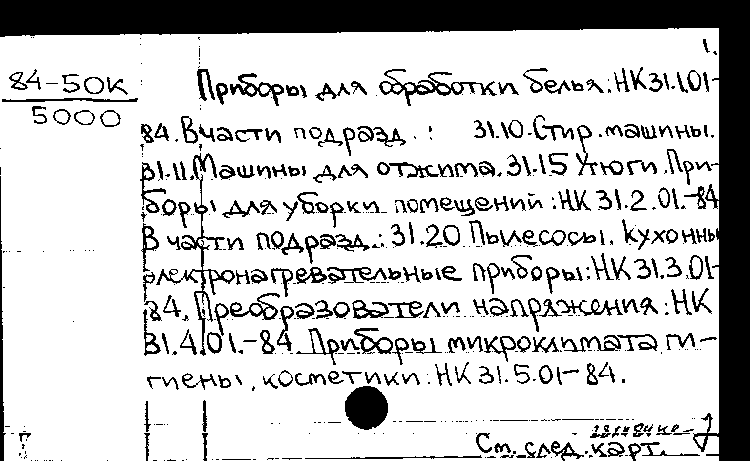 1.
84-50К
5000
Приборы для обработки белья: НК 31.1.01-
84. В части подразд.: 31.10. Стир. машины.
31.11. Машины для отжима. 31.15 Утюги. При-
боры для уборки помещений: НК 31.2.01.-84
В части подразд.: 31.20 Пылесосы. Кухонны
электронагревательные приборы: НК 31.3.01-
84. Преобразователи напряжения: НК
31.4.01.-84. Приборы микроклимата ги-
гиены, косметики: НК 31.5.01-84.
См. след. карт.